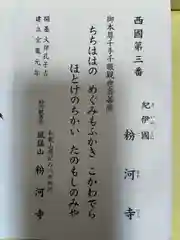 西國第三番
紀伊國
粉河寺
御本尊千手千眼観世音菩薩
ちちははの めぐみもふかき こかわでら
ほとけのちかい たのもしのみや
風猛山 粉河寺
開基 大伴孔子古
建立 宝亀元年